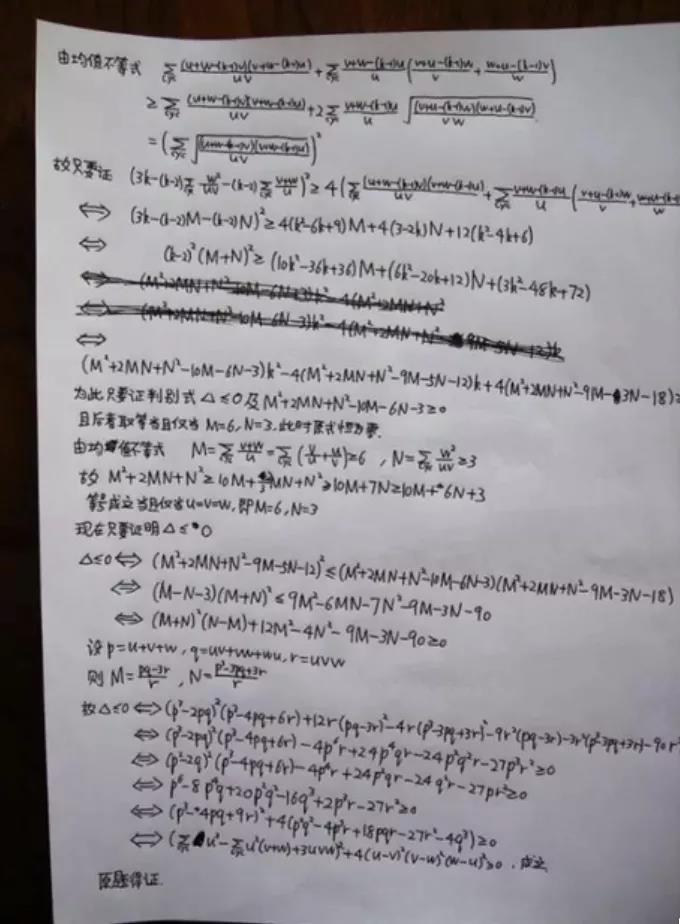 由均值不等式 Σcyc (u+w-(k-1)v)(v+w-(k-1)u)/uv + Σcyc v+w-(k-1)u/u (v+u-(k-1)w/v + w+u-(k-1)v/w)
≥ Σcyc (u+w-(k-1)v)(v+w-(k-1)u)/uv + 2Σcyc v+w-(k-1)u/u √((v+u-(k-1)w)(w+u-(k-1)v)/vw)
= (Σcyc √((u+w-(k-1)v)(v+w-(k-1)u)/uv))²
故只要证 (3k-(k-2)Σcyc w²/uv-(k-2)Σcyc v+w/u)² ≥ 4(Σcyc (u+w-(k-1)v)(v+w-(k-1)u)/uv + Σcyc v+w-(k-1)u/u (v+u-(k-1)w/v +
⇔ (3k-(k-2)M-(k-2)N)² ≥ 4(k²-6k+9)M+4(3-2k)N+12(k²-4k+6)
⇔ (k-2)²(M+N)² ≥ (10k²-36k+36)M+(6k²-20k+12)N+(3k²-48k+72)
⇔
(M²+2MN+N²-10M-6N-3)k²-4(M²+2MN+N²-9M-5N-12)k+4(M²+2MN+N²-9M-3N-18)≥
为此只要证判别式 Δ≤0 及 M²+2MN+N²-10M-6N-3≥0
且后者取等当且仅当 M=6, N=3. 此时原式恒为零.
由均值不等式 M=Σcyc v+w/u = Σcyc (v/u+u/v)≥6 , N=Σcyc w²/uv ≥3
故 M²+2MN+N² ≥ 10M+MN+N² ≥10M+7N≥10M+6N+3
等号成立当且仅当 u=v=w, 即 M=6, N=3
现在只要证明 Δ≤0
Δ≤0 ⇔ (M²+2MN+N²-9M-5N-12)² ≤ (M²+2MN+N²-10M-6N-3)(M²+2MN+N²-9M-3N-18)
⇔ (M-N-3)(M+N)² ≤ 9M²-6MN-7N²-9M-3N-90
⇔ (M+N)²(N-M)+12M²-4N²-9M-3N-90≥0
设 p=u+v+w, q=uv+vw+wu, r=uvw
则 M=pq-3r/r , N=p³-3pq+3r/r
故 Δ≤0 ⇔ (p³-2pq)²(p³-4pq+6r)+12r(pq-3r)²-4r(p³-3pq+3r)²-9r²(pq-3r)-3r²(p³-3pq+3r)-90r³
⇔ (p³-2pq)²(p³-4pq+6r)-4p⁶r+24p⁴qr-24p²q²r-27p³r²≥0
⇔ (p²-2q)²(p³-4pq+6r)-4p⁴r+24p²qr-24q²r-27pr²≥0
⇔ p⁶-8p⁴q+20p²q²-16q³+2p³r-27r²≥0
⇔ (p³-4pq+9r)²+4(p²q²-4p³r+18pqr-27r²-4q³)≥0
⇔ (Σcyc u³-Σcyc u²(v+w)+3uvw)²+4(u-v)²(v-w)²(w-u)²≥0 . 成立
原题得证.